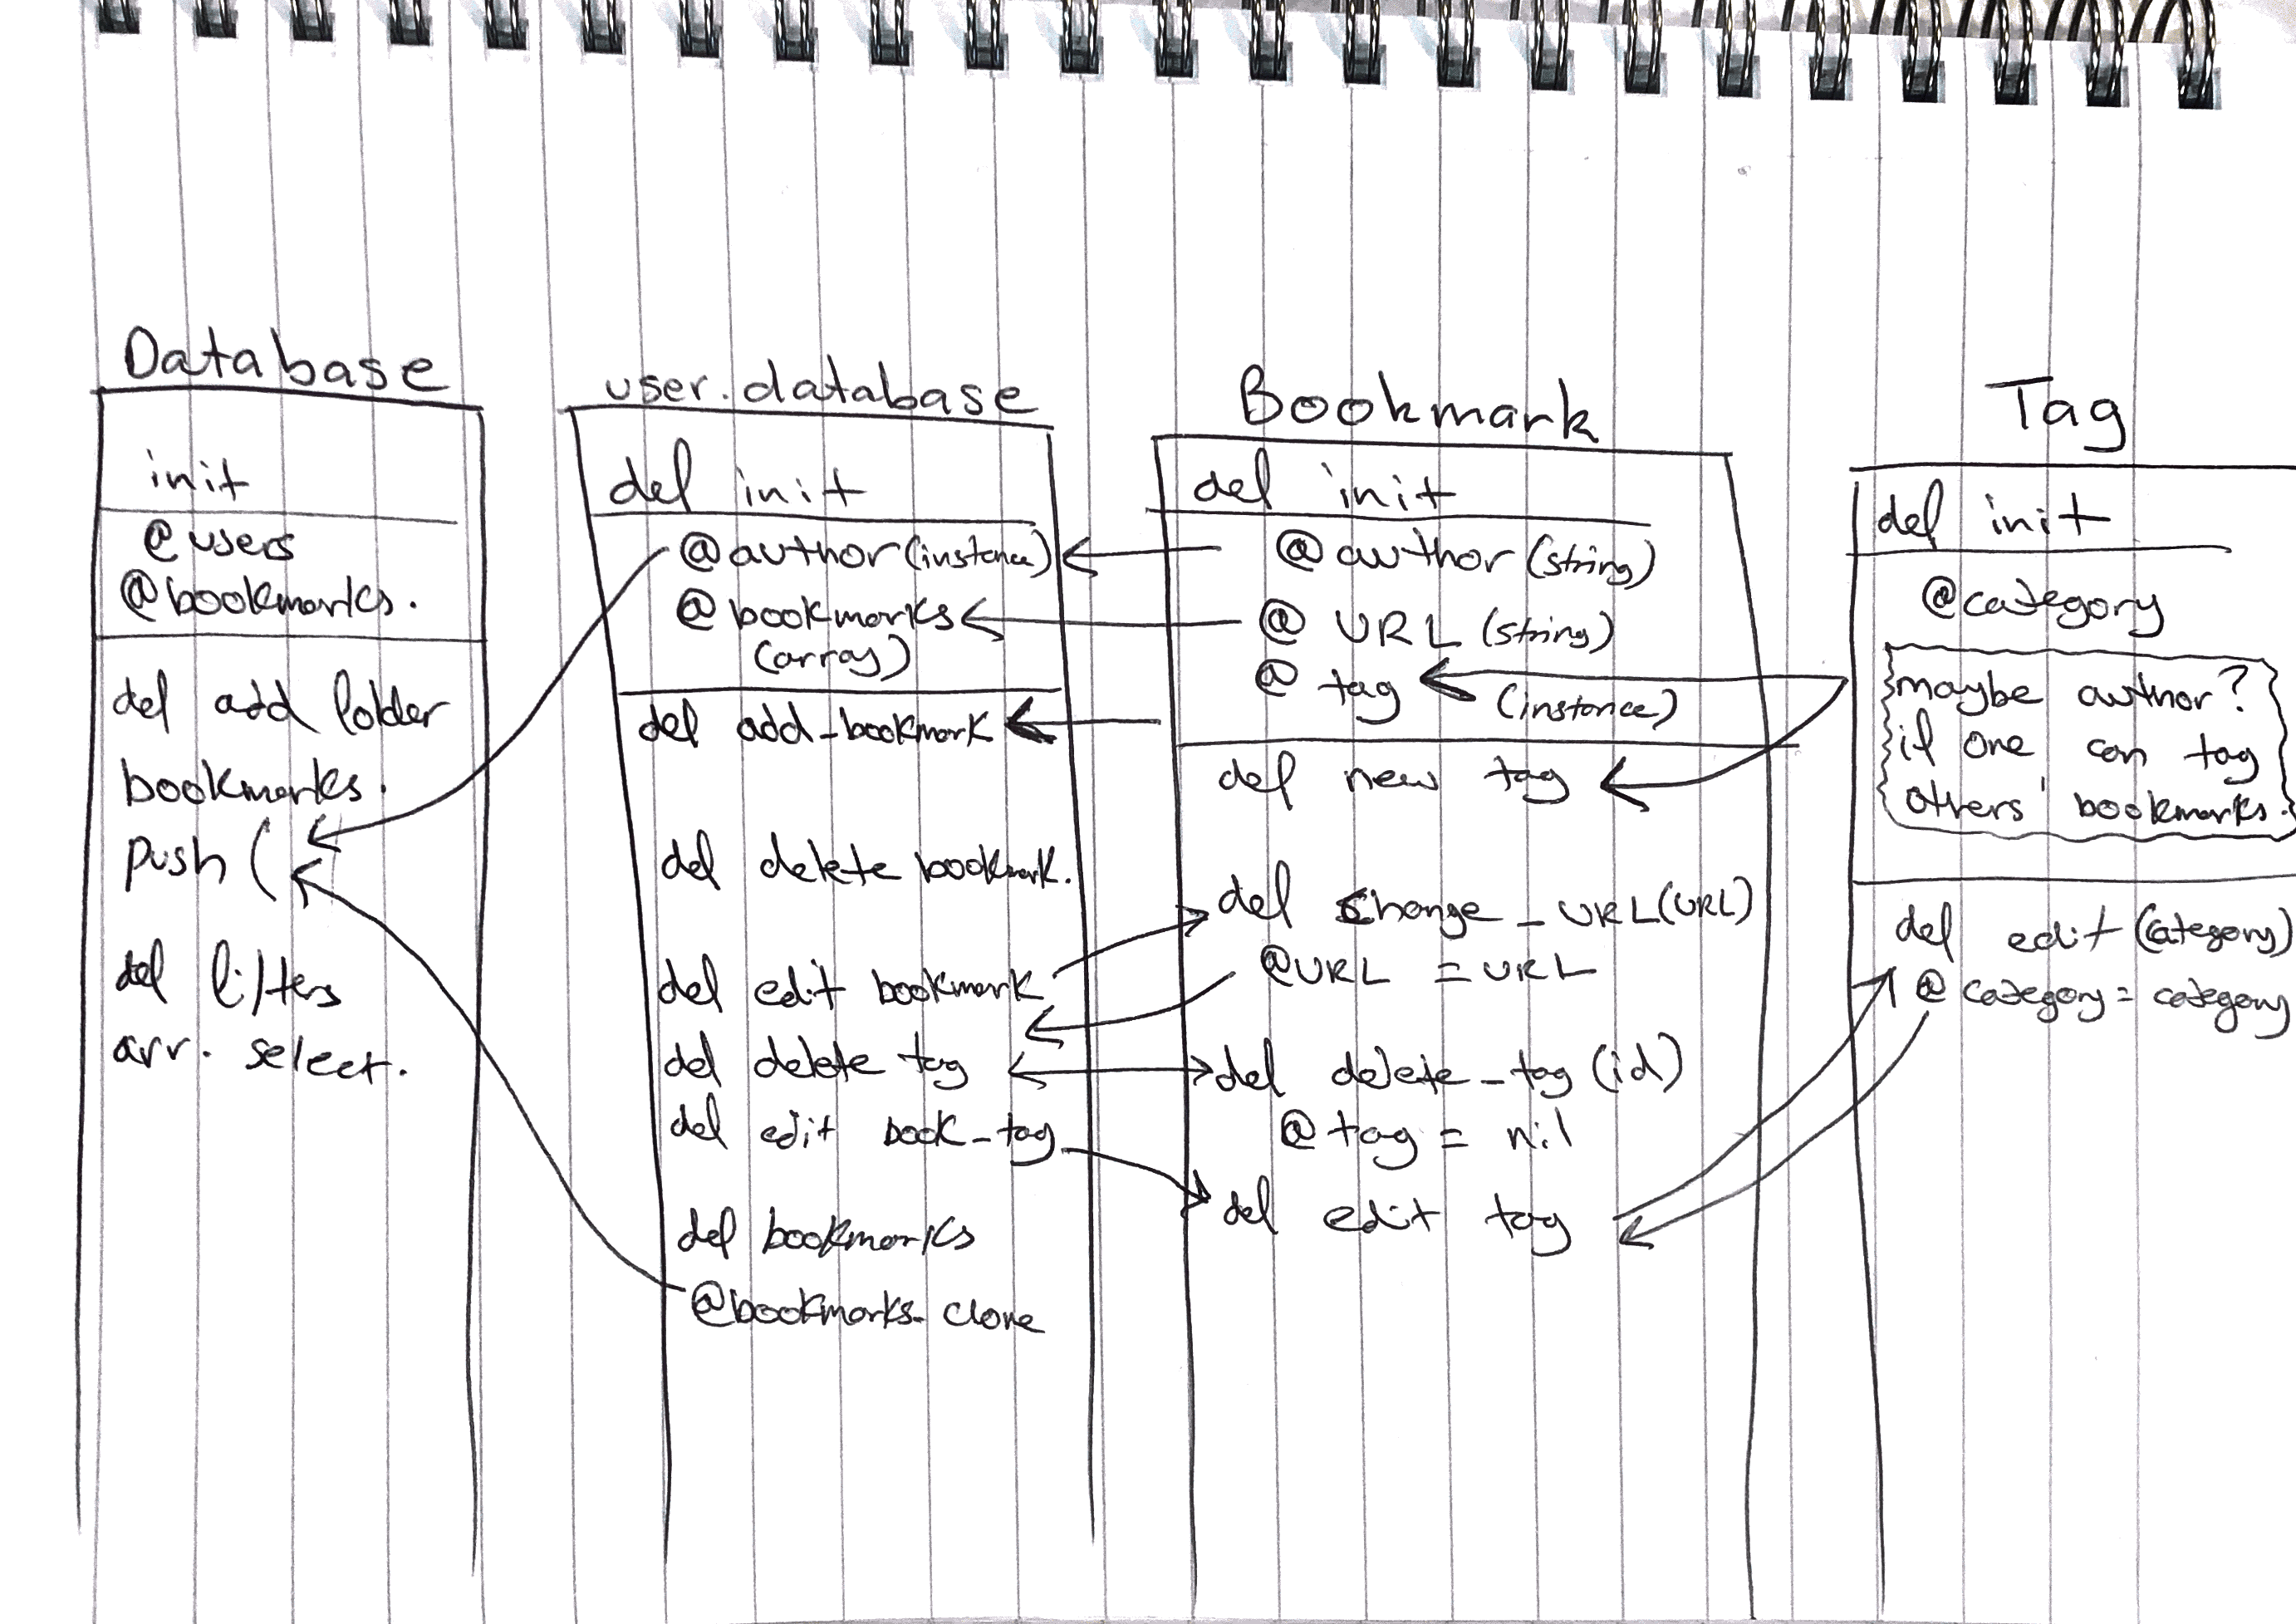 Database
init
@users
@bookmarks.
def add folder
bookmarks.
push (
def filters
arr. select.
user.database
def init
@author (instance)
@bookmarks
(array)
def add_bookmark
def delete bookmark.
def edit bookmark
def delete tag
def edit book_tag
def bookmarks
@bookmarks. clone
Bookmark
def init
@author (string)
@ URL (string)
@ tag
(instance)
def new tag
def change_URL(URL)
@URL = URL
def delete_tag (id)
@tag = nil
def edit tag
Tag
def init
@category
maybe author?
if one can tag
others' bookmarks.
def edit (category)
@ category = category